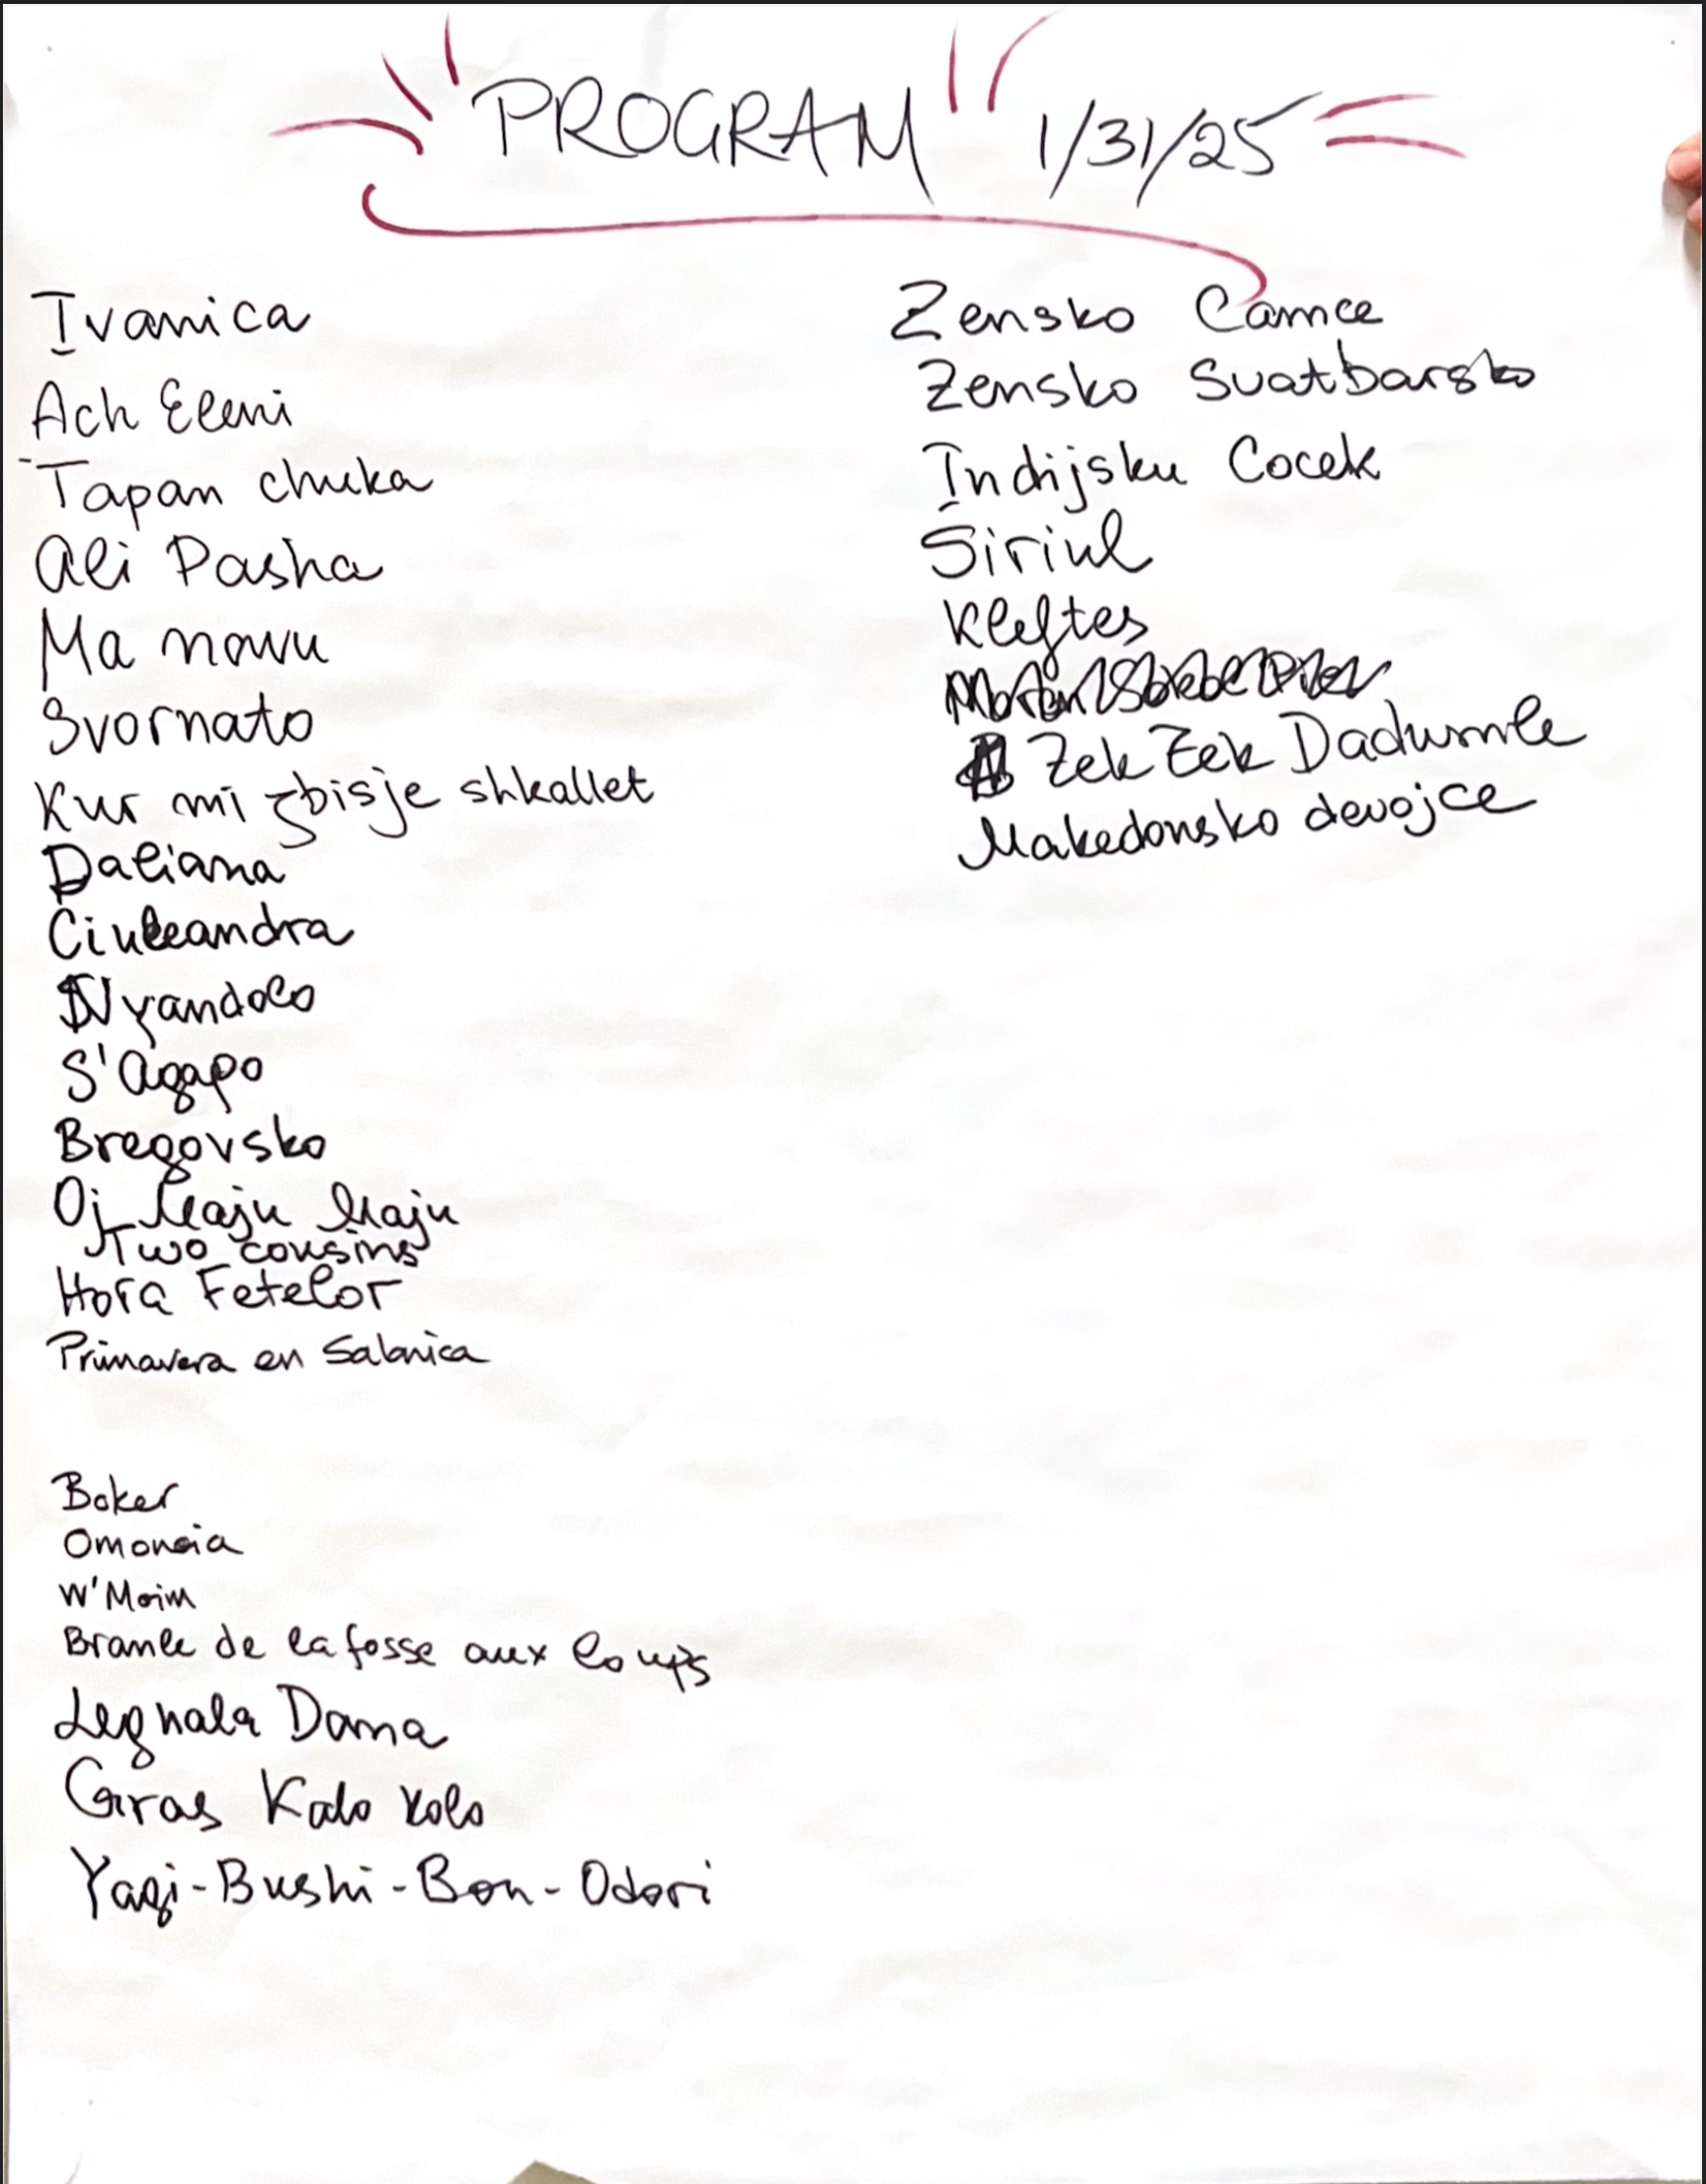 PROGRAM 1/31/25
Ivanica
Ach Eleni
Tapan chuka
Ali Pasha
Ma navu
Svornato
Kur mi zbisje shkallet
Daliana
Ciuleandra
Nyandolo
S'Agapo
Bregovsko
Oj Maju Maju
Two cousins
Hora Fetelor
Primavera en Salonica
Boker
Omonoia
W'Moim
Branle de la fosse aux loups
Legnala Dana
Gras Kalo Kolo
Yagi-Bushi-Bon-Odori
Zensko Camce
Zensko Svatbarsko
Indijsku Cocek
Siriul
Kleftes
Zek Zek Dadumle
Makedonsko devojce